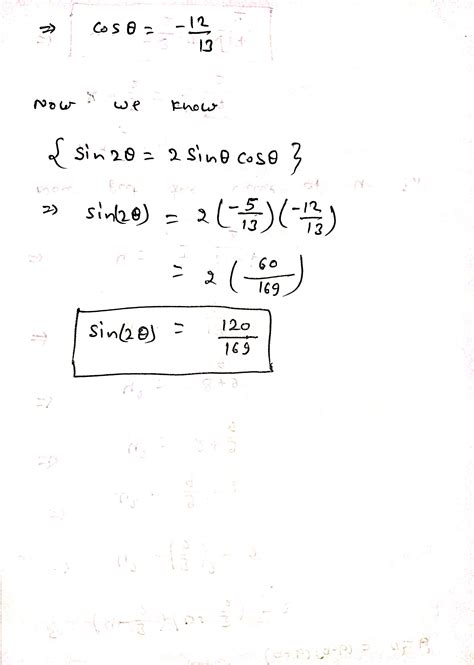 ⇒ cosθ = -12/13
Now we know
{ sin2θ = 2 sinθ cosθ }
⇒ sin(2θ) = 2 (-5/13) (-12/13)
= 2 (60/169)
sin(2θ) = 120/169